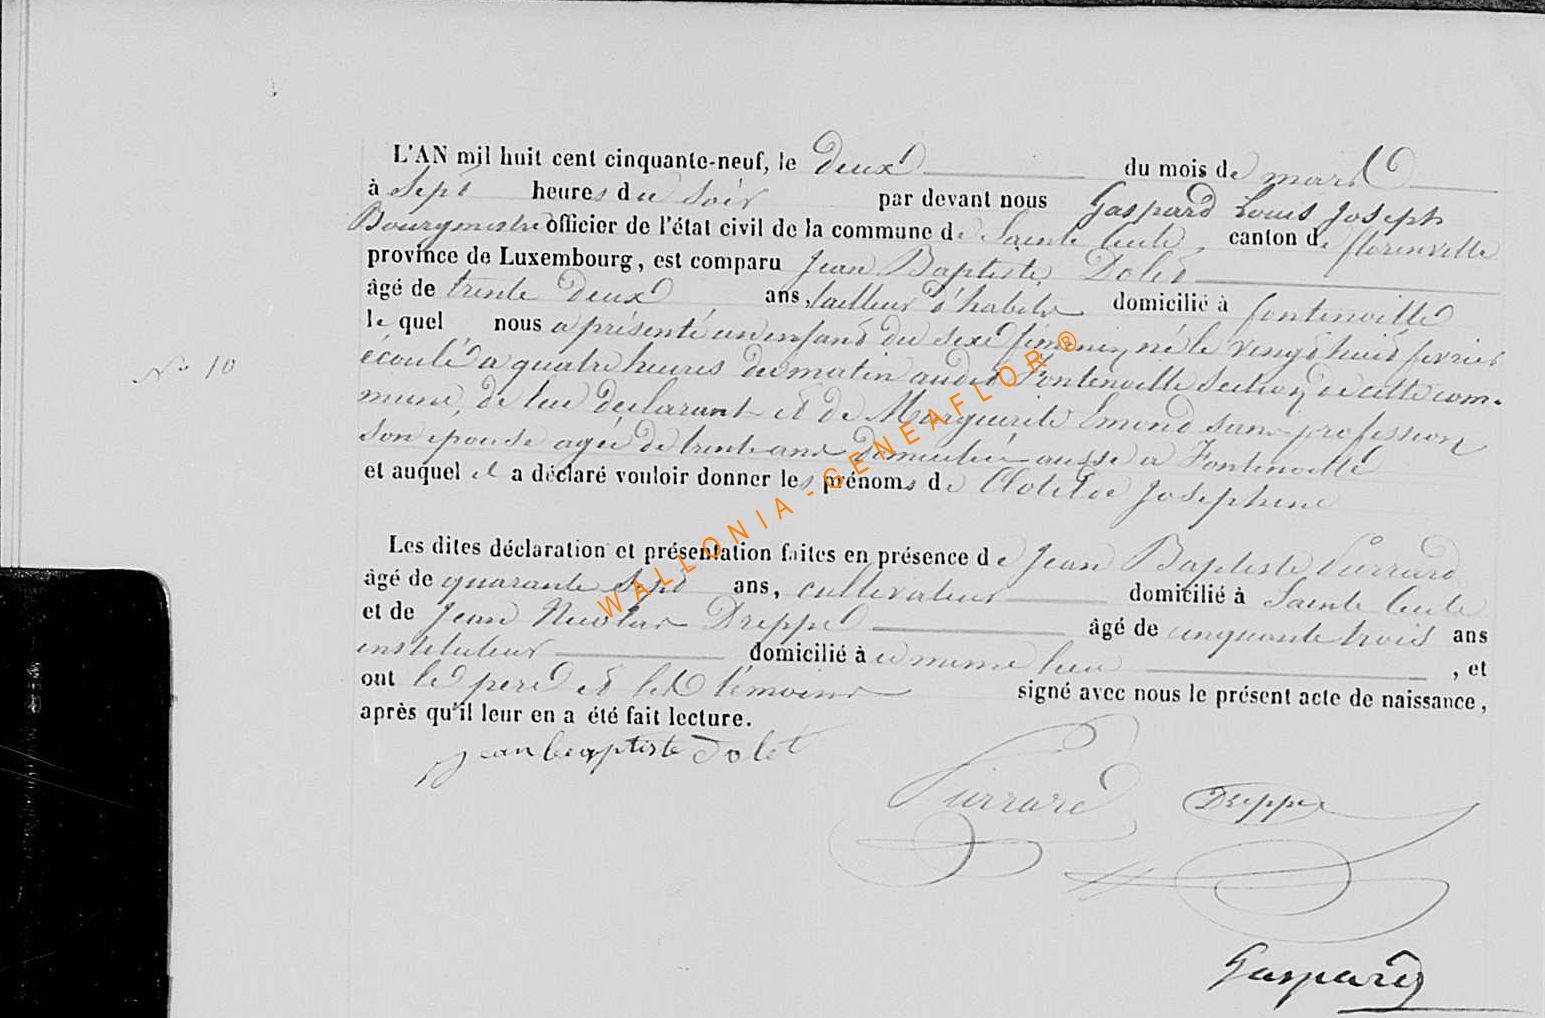 L'AN mil huit cent cinquante-neuf, le deux du mois de mars
à sept heures du soir par devant nous Gaspard Louis Joseph
Bourgmestre officier de l'état civil de la commune de Sainte Cecile, canton de florenville
province de Luxembourg, est comparu Jean Baptiste Dolet
âgé de trente deux ans, tailleur d'habits domicilié à fontenoille
le quel nous a présenté un enfant du sexe féminin né le vingt huit fevrier
N° 10
écoulé a quatre heures du matin audit Fontenoille section de cette com-
mune, de lui déclarant et de Marguerite Emond sans profession
son épouse agée de trente ans domiciliée aussi a Fontenoille
et auquel il a déclaré vouloir donner les prénoms de Clotilde Josephine
Les dites déclaration et présentation faites en présence de Jean Baptiste Pierrard
âgé de quarante sept ans, cultivateur domicilié à Sainte Cecile
et de Jean Nicolas Dreppe âgé de cinquante trois ans
instituteur domicilié à u meme lieu , et
ont le pere et les témoins signé avec nous le présent acte de naissance,
après qu'il leur en a été fait lecture.
jean baptiste dolet
Pierrard Dreppe
Gaspard
WALLONIA-GENEAFLOR®